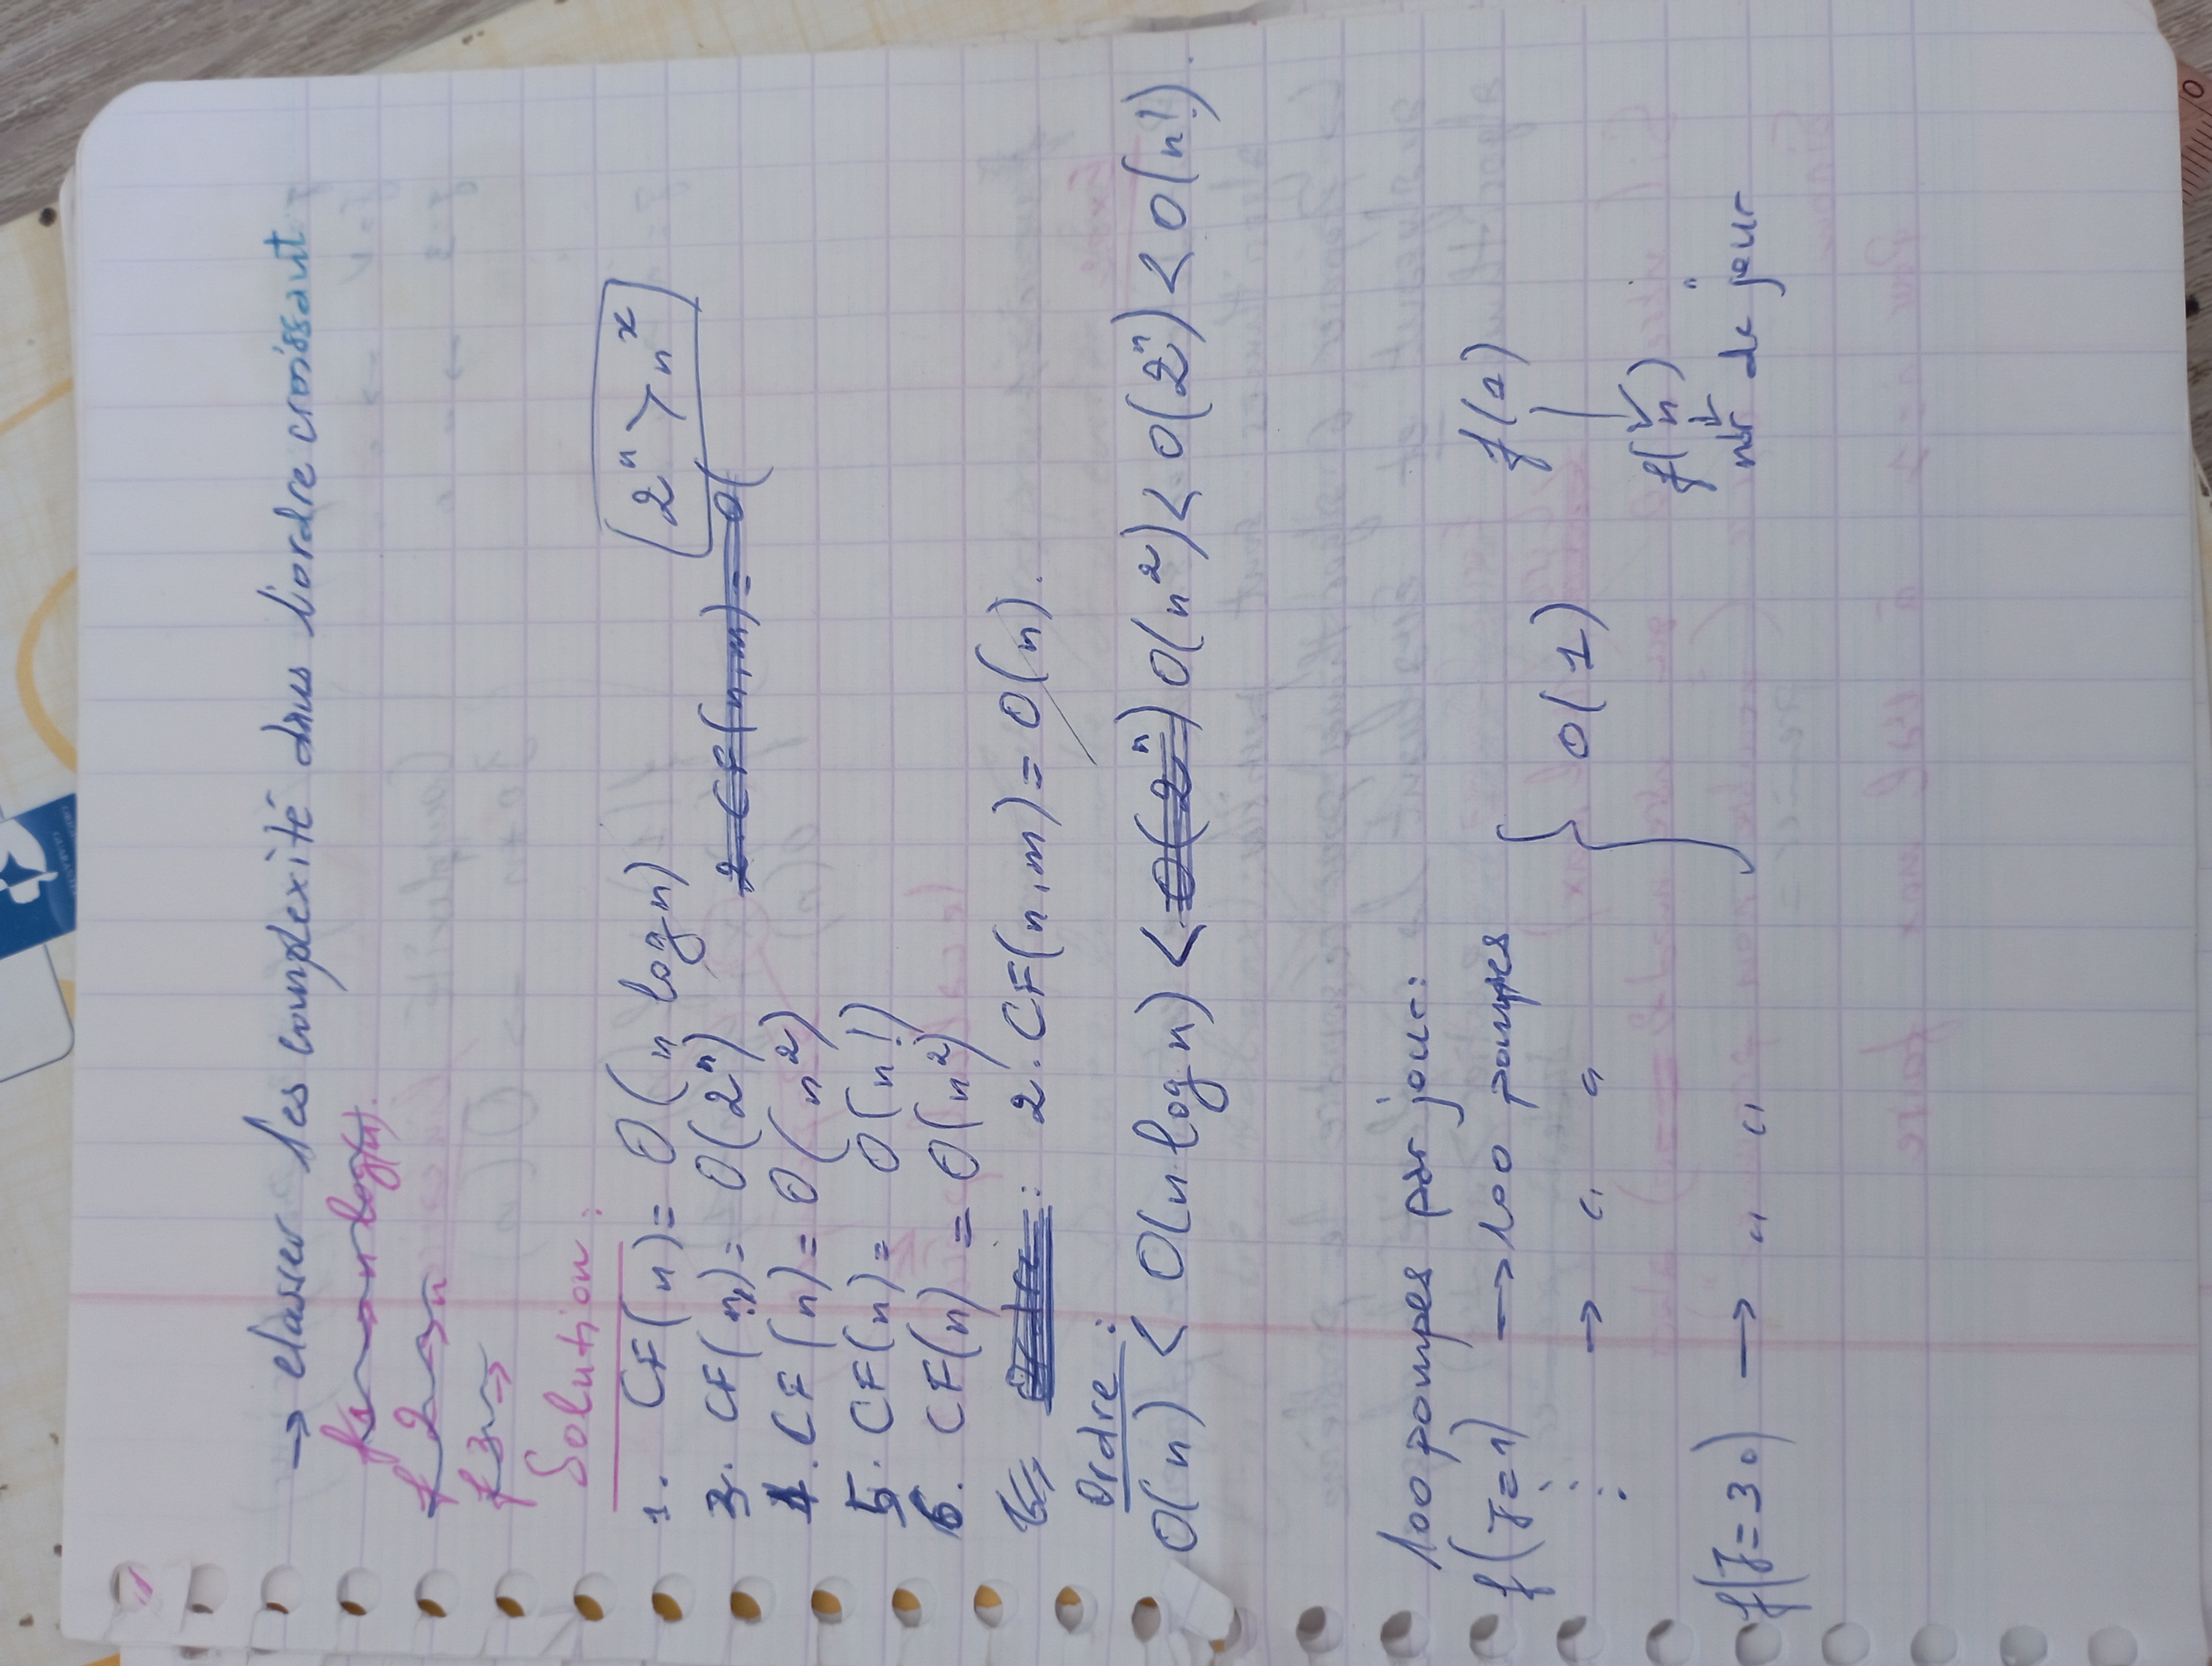 → classer les complexité dans l'ordre croissant
f1 → n log(n).
f2 → n
f3 →
Solution :
1. CF(n) = O(n log n)
2^n > n^2
3. CF(n) = O(2^n) 2. CF(n,m) = O(
4. CF(n) = O(n^2)
5. CF(n) = O(n!)
6. CF(n) = O(n^2)
: 2. CF(n,m) = O(n).
Ordre :
O(n) < O(n log n) < O(2^n) O(n^2) < O(2^n) < O(n!).
100 pompes par jour :
f(J=1) → 100 pompes f(1)
⋮ → " " O(1)
f(n)
f(J=30) → " " nbr de jour